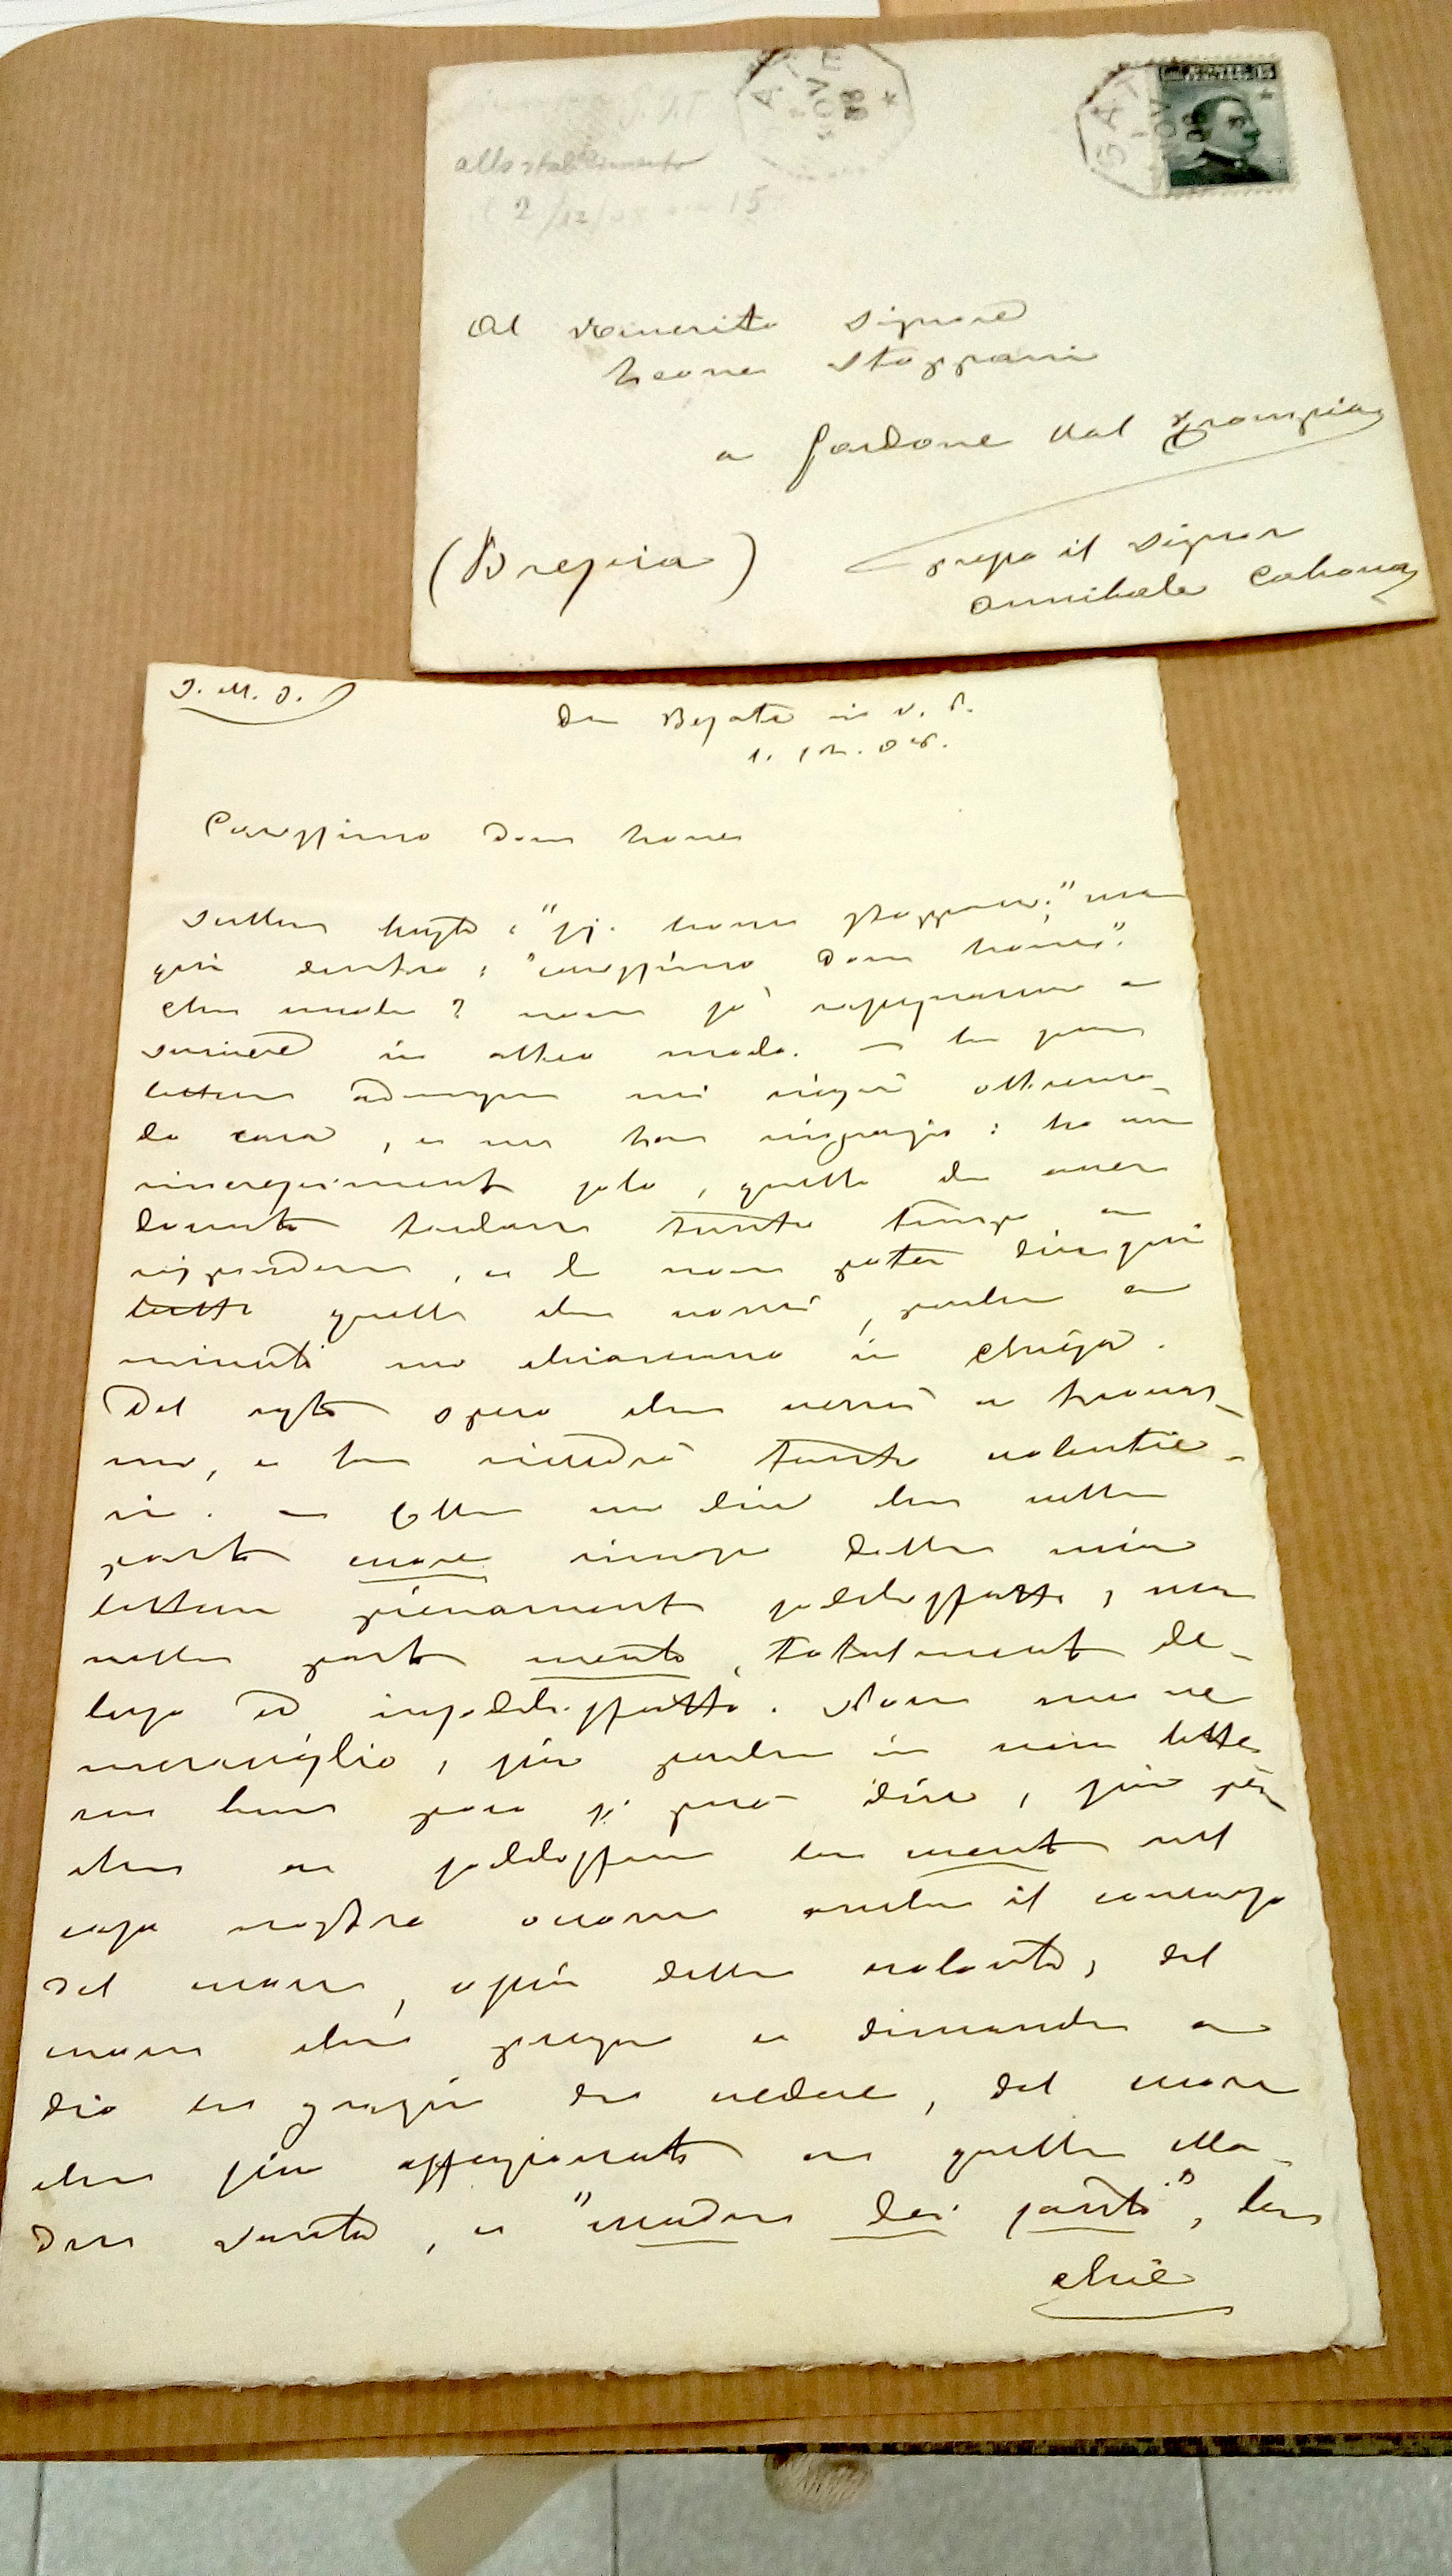 allo stabilimento
2/12/08 15
Al Venerito Signore
Leone Stoppani
a Gardone Val Trompia
(Brescia)
presso il Signor
Annibale Cahona
J. M. J.
Da Besate in V. S.
1. 12. 08.
Carissimo Don Leone
Sulla busta: "Sig. Leone Stoppani;" ma
qui dentro: "carissimo Don Leone".
Che vuole? non so rassegnarmi a
scrivere in altro modo. – La sua
lettera adunque mi riuscì oltremo-
do cara, e ne La ringrazio: ho un
rincrescimento solo, quello di aver
dovuto tardare tanto tempo a
rispondere, e di non poter dire qui
tutto quello che vorrei, perché a
minuti mi chiamano in chiesa.
Del resto spero che verrà a trovar-
mi, e La rivedrò tanto volentie-
ri. – Ella mi dice che nella
parte cuore rimase della mia
lettera pienamente soddisfatto, ma
nella parte mente, totalmente de-
luso ed insoddisfatto. Non me ne
meraviglio, sia perché in una lette-
ra ben poco si può dire, sia per-
che a soddisfare la mente nel
caso nostro occorre anche il concorso
del cuore, ossia della volontà, del
cuore che prega e dimanda a
Dio la grazia di vedere, del cuore
che sia affezionato a quella Ma-
dre Santa, e "madre dei santi", la
chie